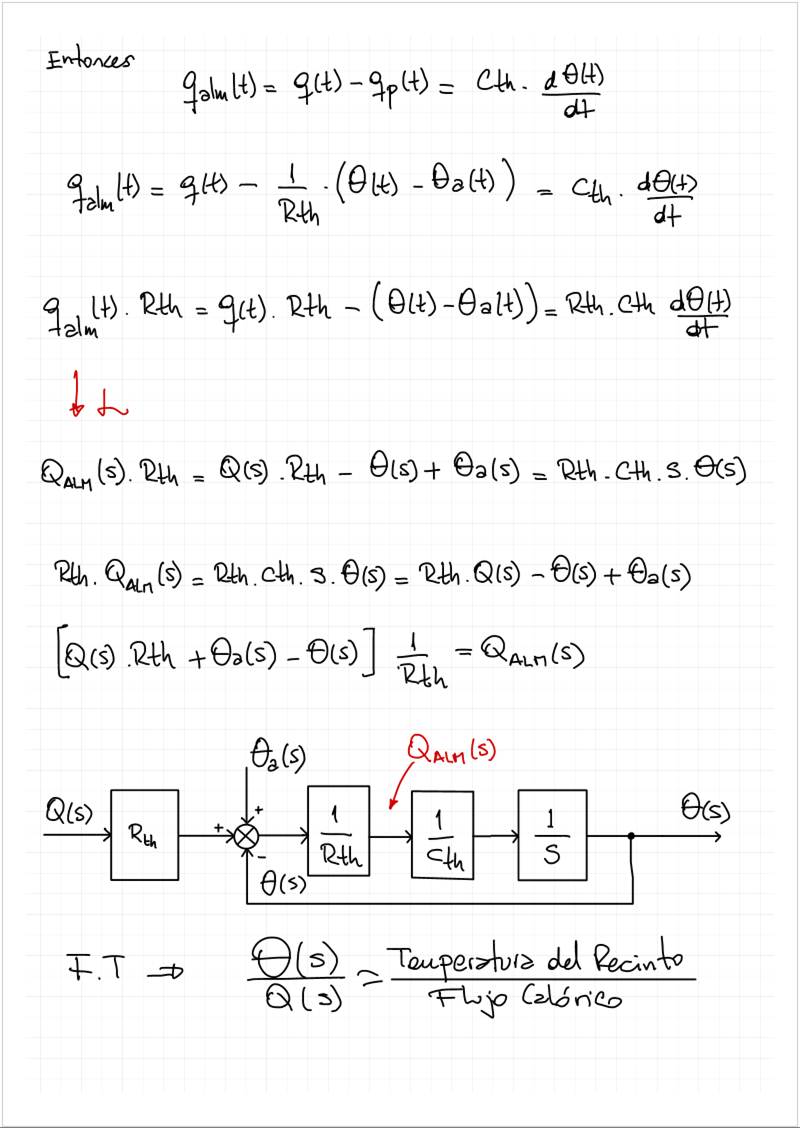 Entonces
q_alm(t) = q(t) - q_p(t) = Cth · dθ(t)/dt
q_alm(t) = q(t) - 1/Rth · (θ(t) - θa(t)) = Cth · dθ(t)/dt
q_alm(t) · Rth = q(t) · Rth - (θ(t) - θa(t)) = Rth · Cth dθ(t)/dt
↓ L
Q_ALM(s) · Rth = Q(s) · Rth - θ(s) + θa(s) = Rth · Cth · s · θ(s)
Rth · Q_ALM(s) = Rth · Cth · s · θ(s) = Rth · Q(s) - θ(s) + θa(s)
[Q(s) · Rth + θa(s) - θ(s)] 1/Rth = Q_ALM(s)
θa(s) Q_ALM(s)
Q(s) Rth + + - 1/Rth 1/Cth 1/S θ(s)
θ(s)
F.T ⇒ θ(s)/Q(s) = Temperatura del Recinto/Flujo Calórico